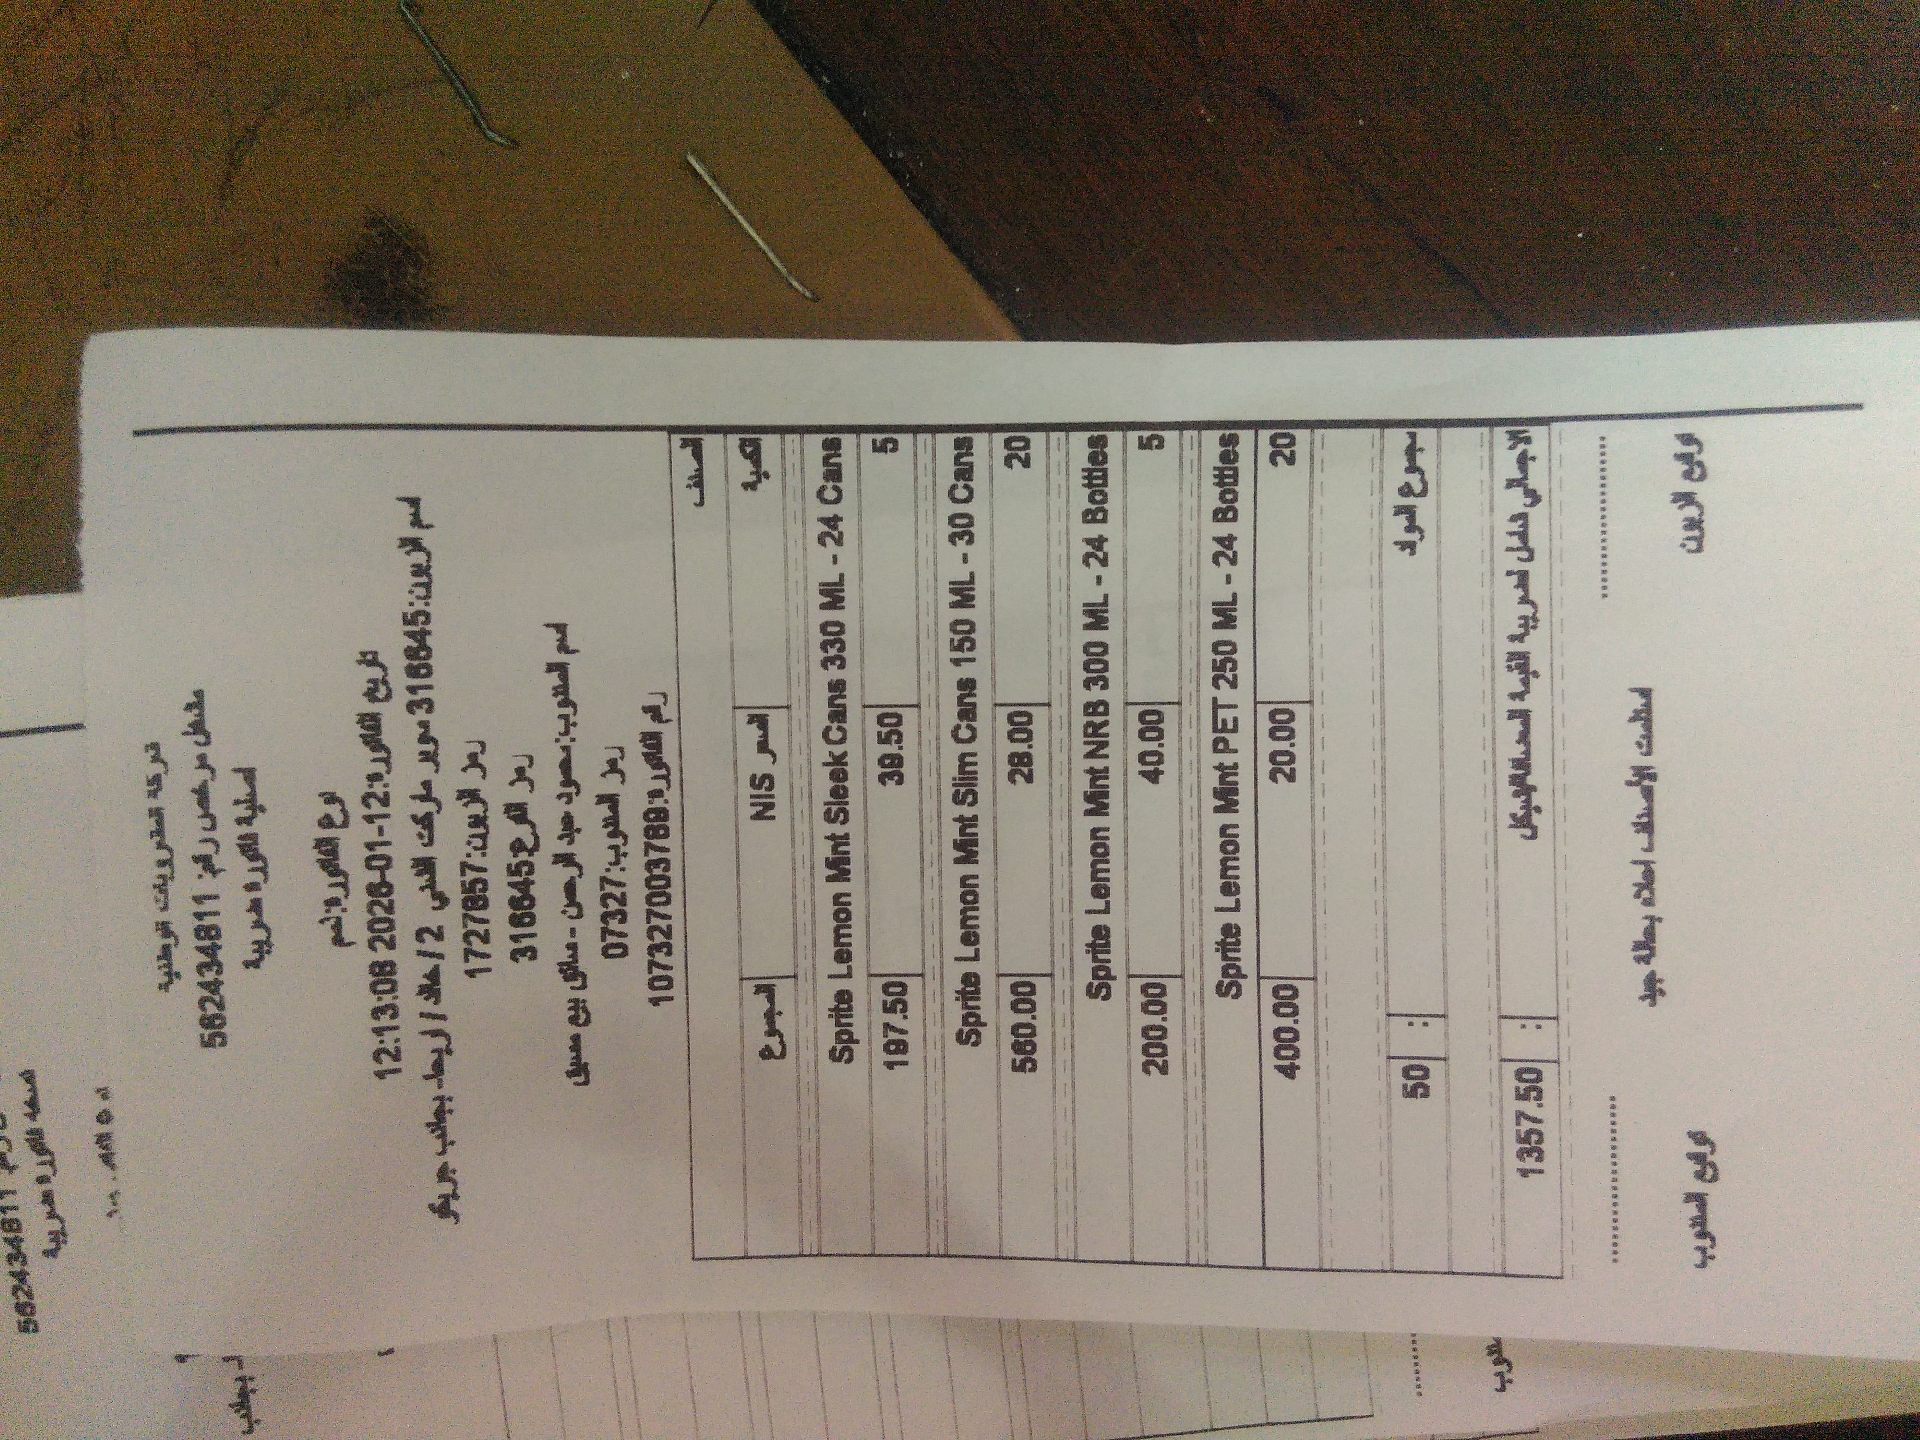 شركة المشروبات الوطنية
مشغل مرخص رقم: 562434811
اصلية فاتورة ضريبية
نوع الفاتورة: ذمم
تاريخ الفاتورة: 12-01-2026 12:13:08
اسم الزبون: 316645 سوبر ماركت
2 / اريحا- بجانب جريكو
رمز الزبون: 1727857
رمز الفرع 316645
اسم المندوب: محمود عبد الرحمن - سائق بيع مسبق
رمز المندوب: 07327
رقم الفاتورة: 107327003789
الصنف
الكمية السعر NIS المجموع
Sprite Lemon Mint Sleek Cans 330 ML - 24 Cans
5 39.50 197.50
Sprite Lemon Mint Slim Cans 150 ML - 30 Cans
20 28.00 560.00
Sprite Lemon Mint NRB 300 ML - 24 Bottles
5 40.00 200.00
Sprite Lemon Mint PET 250 ML - 24 Bottles
20 20.00 400.00
مجموع المواد : 50
الاجمالي شامل لضريبة القيمة المضافة/شيكل : 1357.50
استلمت الأصناف اعلاه بحالة جيد
توقيع الزبون توقيع المندوب
562434811
ضريبية
بجانب